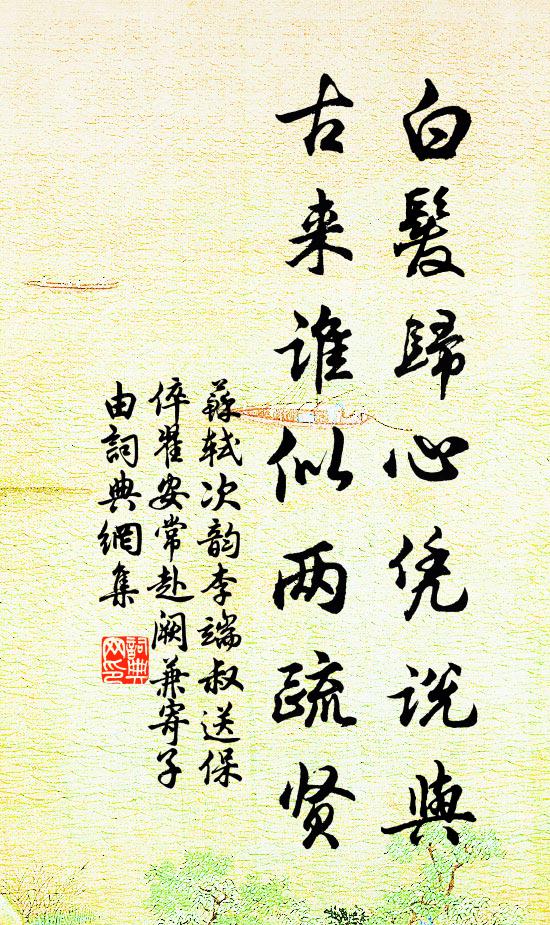 白髮歸心凭説與
古来誰似两疏贤
蘇轼次韵李端叔送保
倅翟安常赴阙兼寄子
由詞典網集
詞典网印